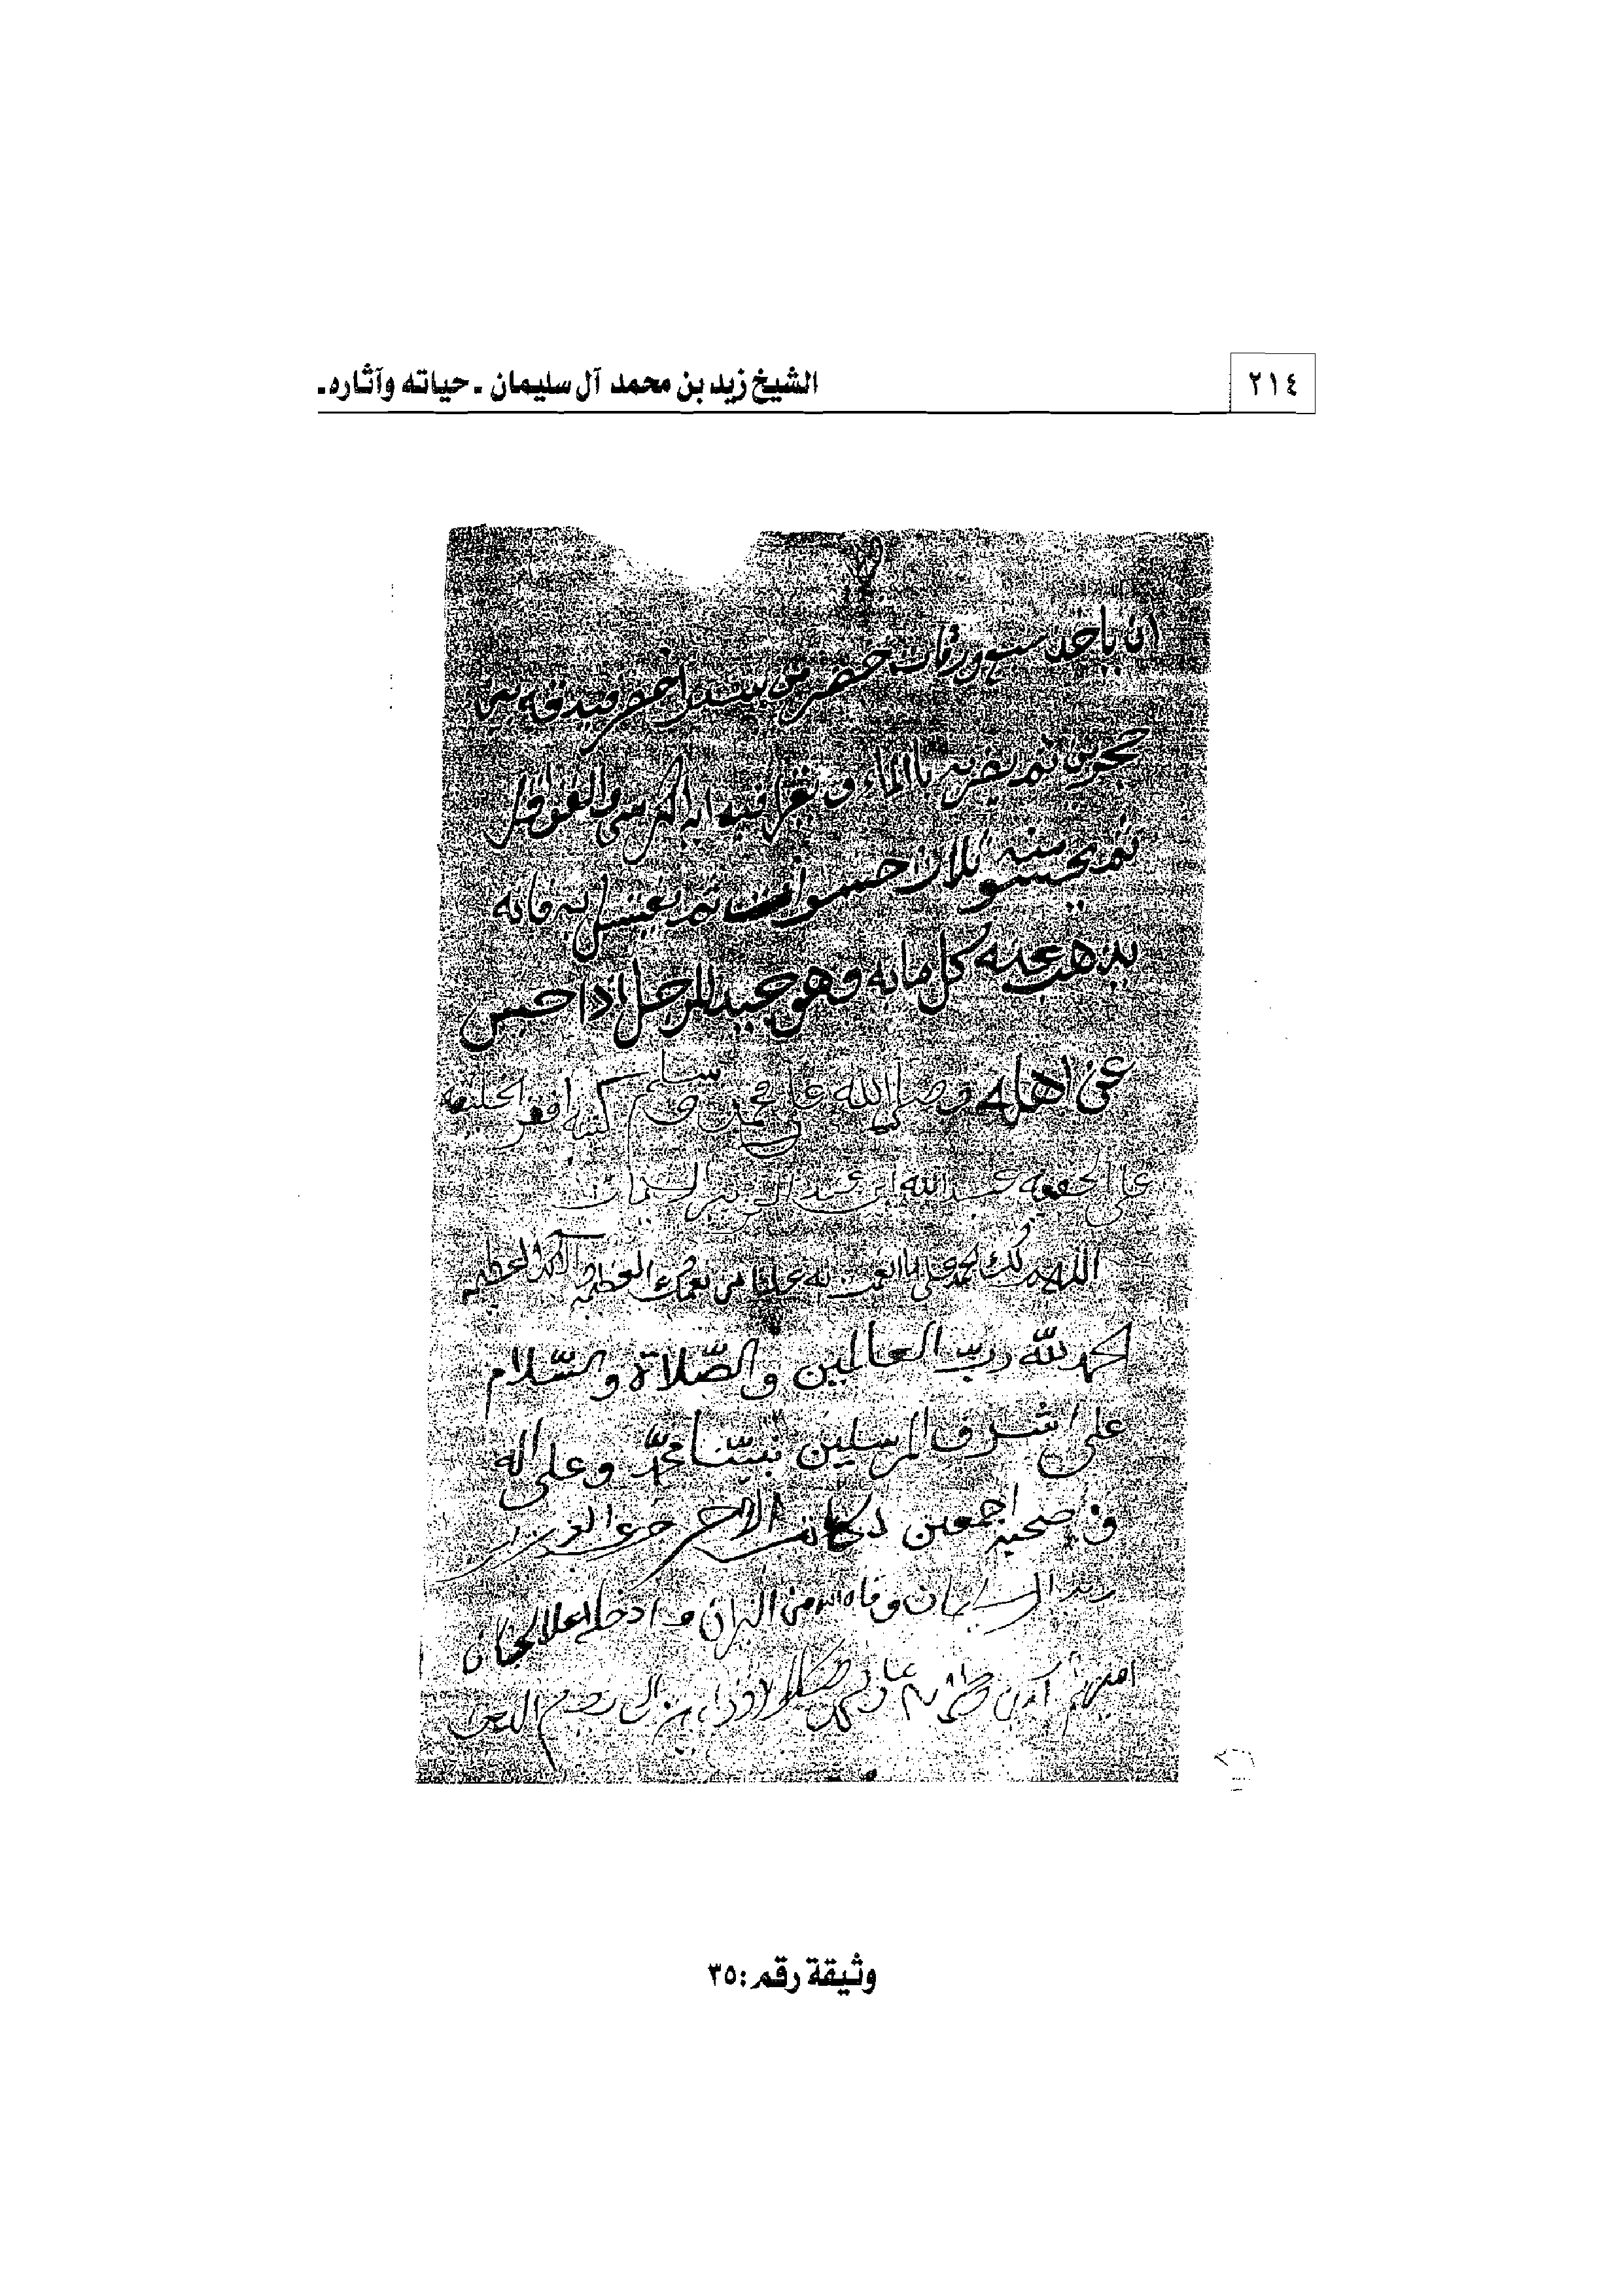 ٢١٤
الشيخ زيد بن محمد آل سليمان ـ حياته وآثاره ـ
ان ياخذ سبع ورقات خضر من سدر اخضر فيدقه بين
حجرين ثم يضربه بالماء و يقرا فيه اية الكرسي والقواقل
ثم يحسو منه ثلاث حسوات ثم يغتسل به فانه
يذهب عنه كل مابه وهو جيد للرجل اذا حبس
عن اهله وصلى الله على محمد وسلم كتبه افقر الخليقة
عبد الله ابن
اللهم لك الحمد على ما انعمت به علينا من نعمك العظيمه
الحمد لله رب العالمين والصّلاة والسّلام
على اشرف المرسلين نبيّنا محمّد وعلى اله
و صحبه اجمعين
وقاه الله من النيران و ادخله اعلا الجنان
امين
الى يوم الدين
وثيقة رقم: ٣٥